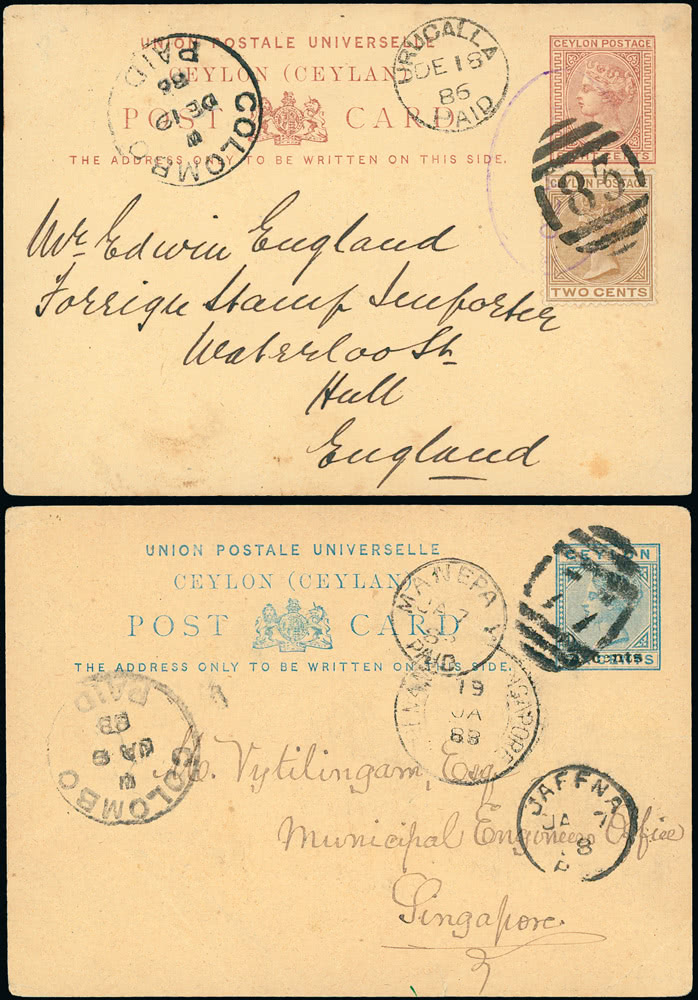 UNION POSTALE UNIVERSELLE
CEYLON (CEYLAN)
POST CARD
THE ADDRESS ONLY TO BE WRITTEN ON THIS SIDE.
COLOMBO
PAID
86
DE 19
URUGALLA
DE 18
86
PAID
CEYLON POSTAGE
CENTS
85
CEYLON POSTAGE
TWO CENTS
Mr Edwin England
Forreign Stamp Importer
Waterloo St
Hull
England
UNION POSTALE UNIVERSELLE
CEYLON (CEYLAN)
POST CARD
THE ADDRESS ONLY TO BE WRITTEN ON THIS SIDE.
MANEPAY
JA 7
PAID
CEYLON
cents
COLOMBO
PAID
88
JA 9
SINGAPORE
19
JA
88
Vytilingam, Esq
Municipal Engineers Office
Singapore
JAFFNA
JA 7